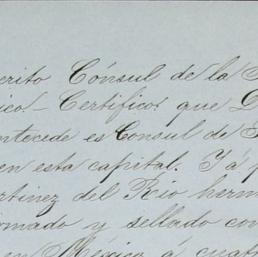 crito Cónsul de la
ico. Certifico: que D
ntecede es Consul de
en esta capital. Y á p
rtinez del Rio herm
irmado y sellado con
en México á cuatr